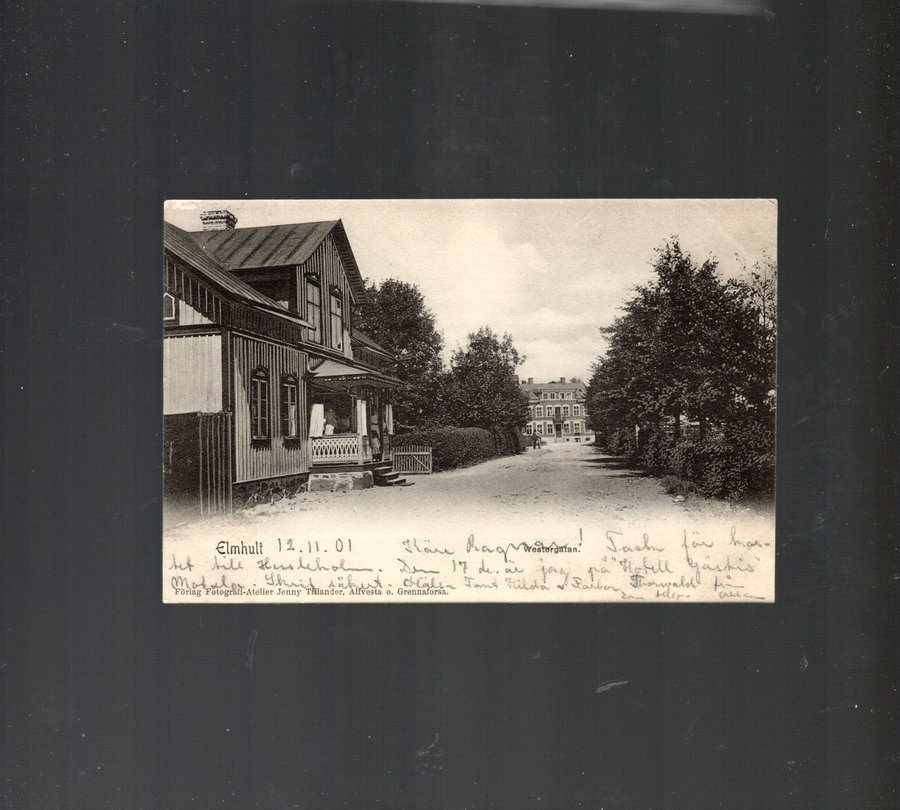 Elmhult 12.11.01 Käre Ragnar! Westergatan. Tack för kor-
tet till Hessleholm. Den 17 de. är jag på "Hotell Gästis"
Skrif säkert. Helsa Tant Hilda o Farbror Thorwald från
Förlag Fotografi-Atelier Jenny Tillander, Alfvesta o. Grennaforsa.